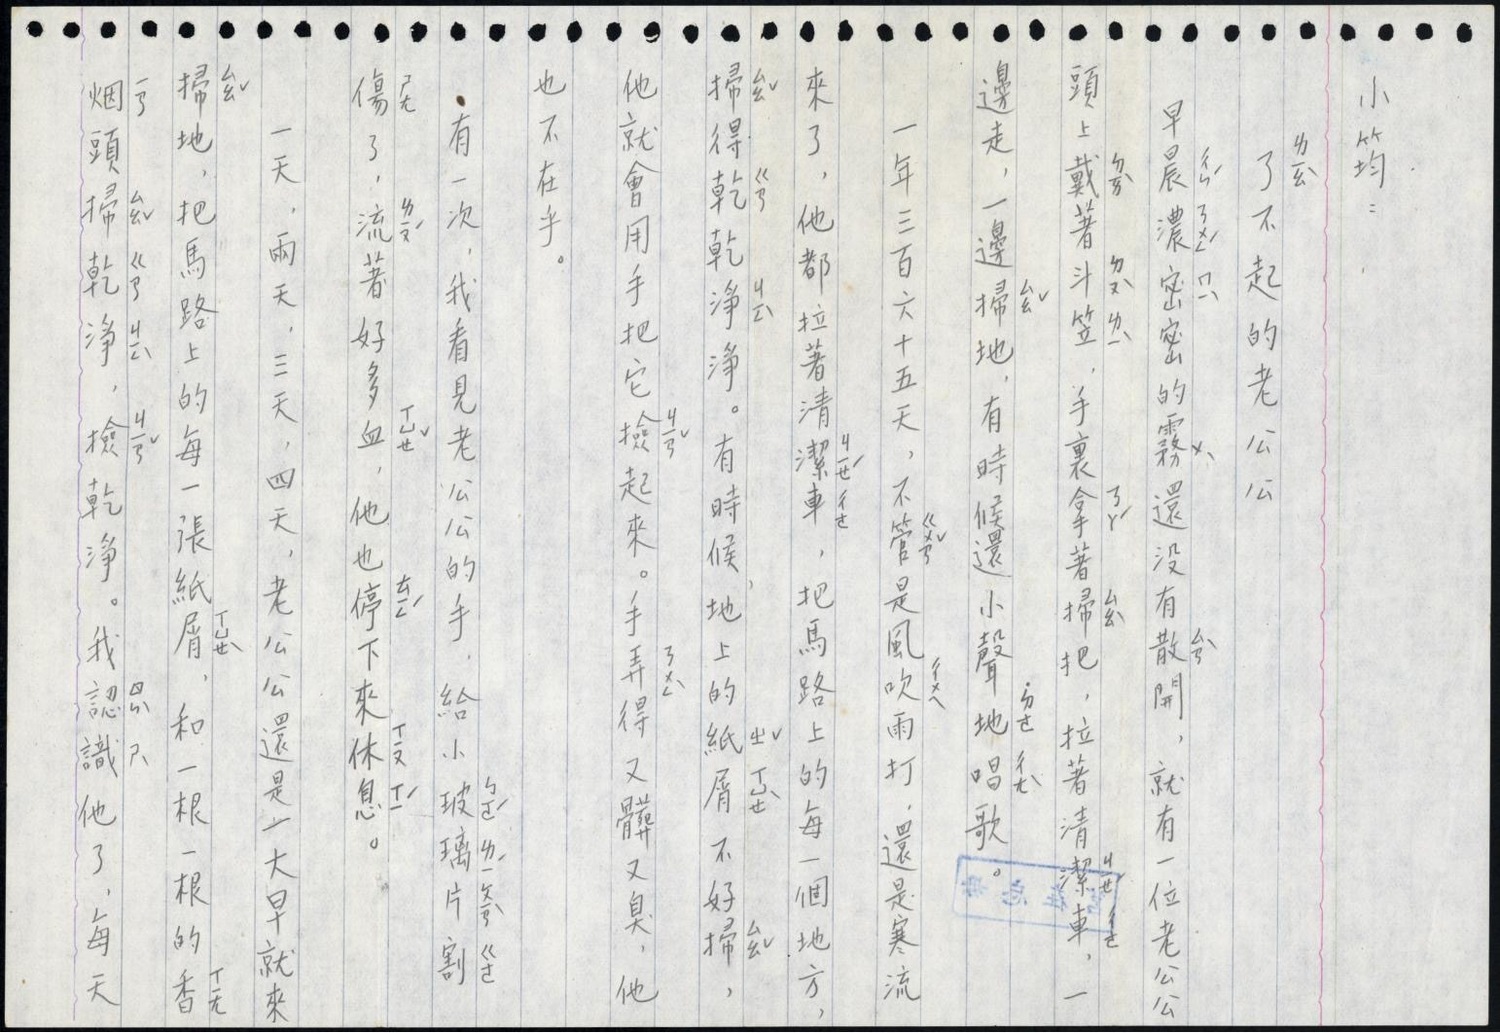 小筠：
了不起的老公公
早晨濃密密的霧還没有散開，就有一位老公公
頭上戴著斗笠，手裏拿著掃把，拉著清潔車，一
邊走，一邊掃地，有時候還小聲地唱歌。
一年三百六十五天，不管是風吹雨打，還是寒流
來了，他都拉著清潔車，把馬路上的每一個地方，
掃得乾乾淨淨。有時候，地上的紙屑不好掃，
他就會用手把它撿起來。手弄得又髒又臭，他
也不在乎。
有一次，我看見老公公的手，給小玻璃片割
傷了，流著好多血，他也停下來休息。
一天，兩天，三天，四天，老公公還是一大早就來
掃地，把馬路上的每一張紙屑，和一根一根的香
烟頭掃乾淨，撿乾淨。我認識他了，每天